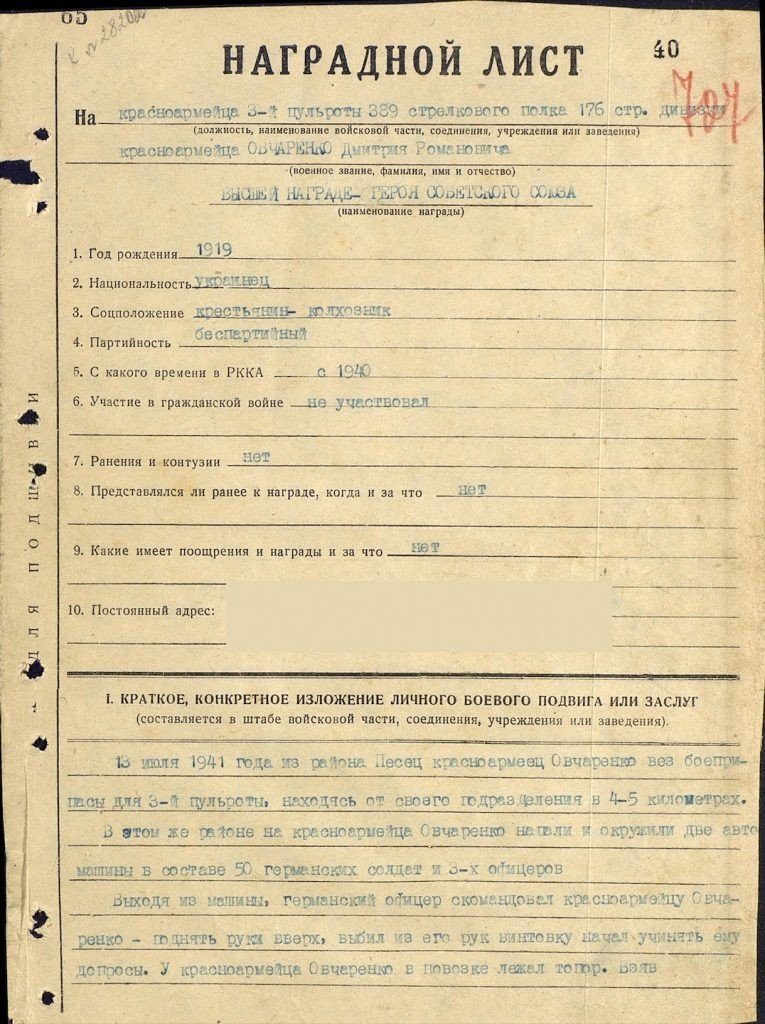 65
40
НАГРАДНОЙ ЛИСТ
707
На красноармейца 3-й пульроты 389 стрелкового полка 176 стр. дивизии
(должность, наименование войсковой части, соединения, учреждения или заведения)
красноармейца ОВЧАРЕНКО Дмитрия Романовича
(военное звание, фамилия, имя и отчество)
ВЫСШЕЙ НАГРАДЕ- ГЕРОЯ СОВЕТСКОГО СОЮЗА
(наименование награды)
1. Год рождения 1919
2. Национальность украинец
3. Соцположение крестьянин- колхозник
4. Партийность беспартийный
5. С какого времени в РККА с 1940
6. Участие в гражданской войне не участвовал
7. Ранения и контузии нет
8. Представлялся ли ранее к награде, когда и за что нет
9. Какие имеет поощрения и награды и за что нет
10. Постоянный адрес:
I. КРАТКОЕ, КОНКРЕТНОЕ ИЗЛОЖЕНИЕ ЛИЧНОГО БОЕВОГО ПОДВИГА ИЛИ ЗАСЛУГ
(составляется в штабе войсковой части, соединения, учреждения или заведения).
13 июля 1941 года из района Песец красноармеец Овчаренко вез боепри-
пасы для 3-й пульроты, находясь от своего подразделения в 4-5 километрах.
В этом же районе на красноармейца Овчаренко напали и окружили две авто
машины в составе 50 германских солдат и 3-х офицеров
Выходя из машины, германский офицер скомандовал красноармейцу Овча-
ренко - поднять руки вверх, выбил из его рук винтовку начал учинять ему
допросы. У красноармейца Овчаренко в повозке лежал топор. Взяв
ДЛЯ ПОДШИВКИ